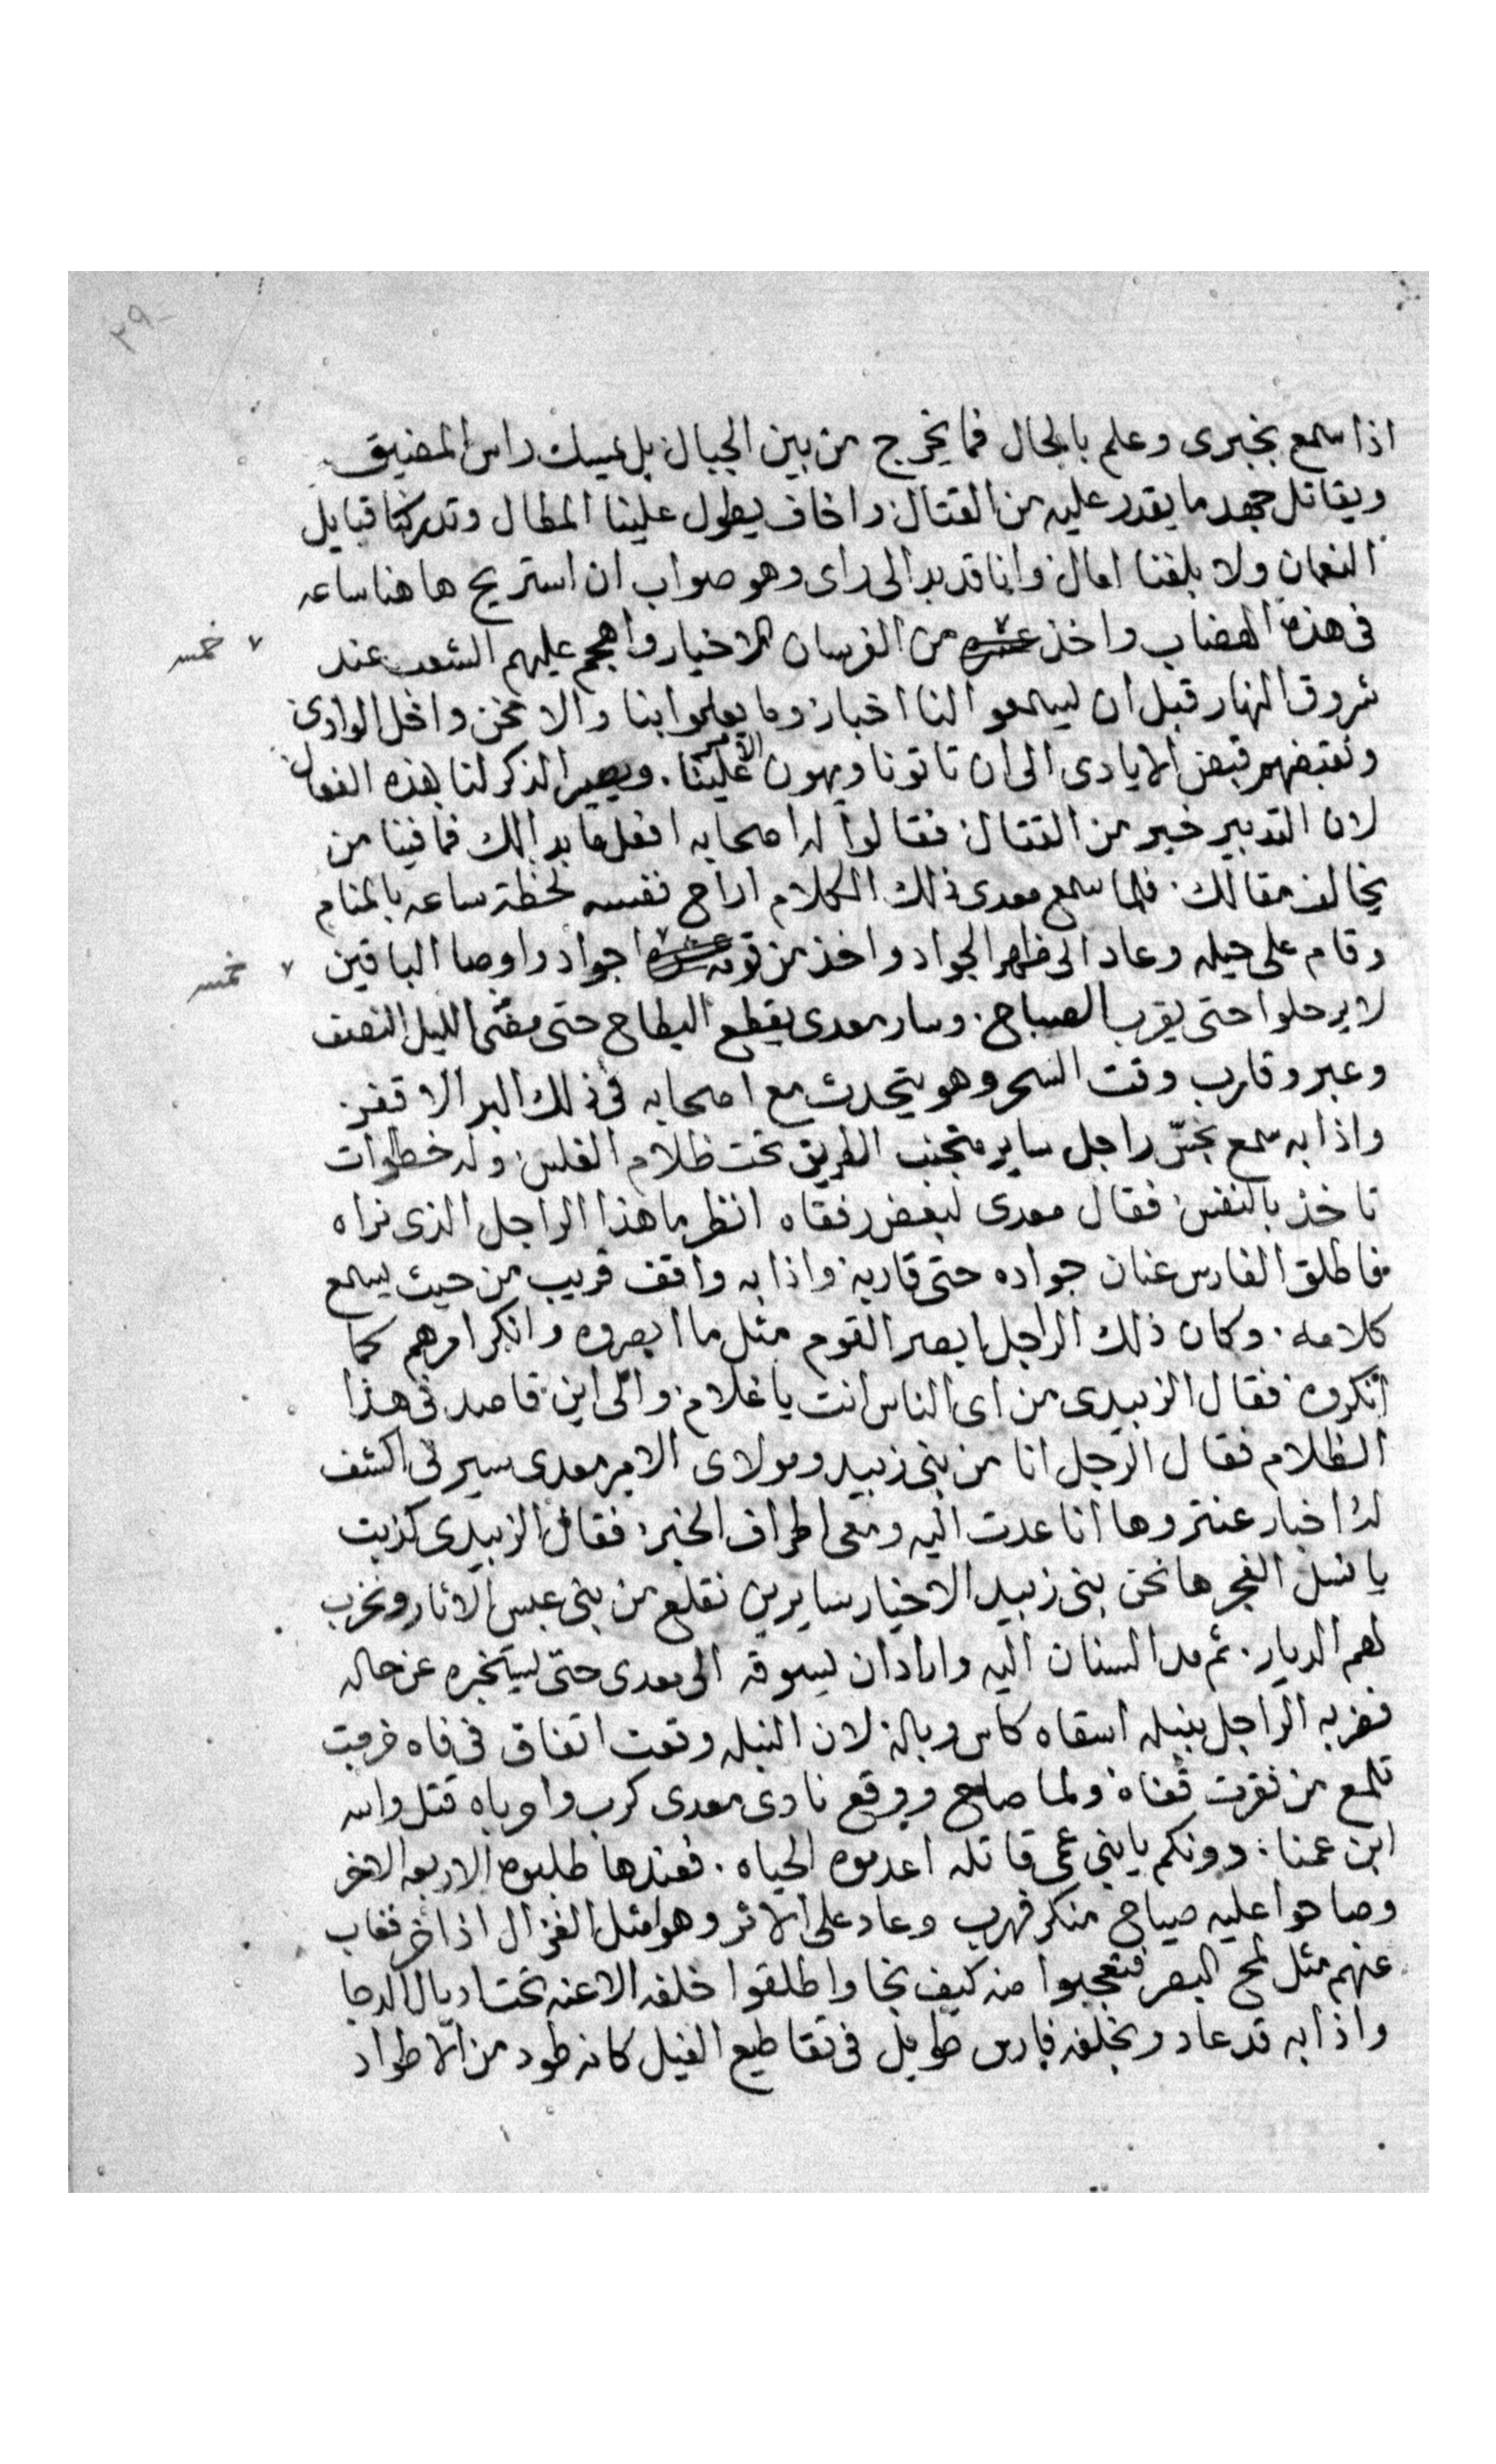 ٢٩٠
اذا سمع بخبرى وعلم بالحال فما يخرج من بين الجبال بل يمسك راس المضيق
ويقاتل جهد ما يقدر عليه من القتال واخاف يطول علينا المطال وتدركنا قبايل
النعمان ولا بلغنا امال وانا قد بدا لى راى وهو صواب ان استريح هاهنا ساعه
فى هذه الهضاب واخذ عشره من الفرسان الاخيار واهجم عليهم الشعب عند
خمسه
شروق النهار قبل ان يسمعوا لنا اخبار وما يعلموا بنا والا نحن داخل الوادى
ونقبضهم قبض الايادى الى ان تاتونا ويهون الامر علينا . ويصير الذكر لنا بهذه الفعال
لان التدبير خير من القتال فقالوا له اصحابه افعل ما بدا لك فما فينا من
يخالف مقالك . فلما سمع معدى ذلك الكلام اراح نفسه لحظة ساعه بالمنام
وقام على حيله وعاد الى ظهر الجواد واخذ من قومه عشره اجواد واوصا الباقين
خمسه
لا يرحلوا حتى يقرب الصباح . وسار معدى يقطع البطاح حتى مضى الليل النصف
وعبر وقارب وقت السحر وهو يتحدث مع اصحابه فى ذلك البر الاقفر
واذا به سمع بحسّ راجل ساير متجنب الطريق تحت ظلام الغلس وله خطوات
تاخذ بالنفس فقال معدى لبعض رفقاه انظر ما هذا الراجل الذى نراه
فاطلق الفارس عنان جواده حتى قاربه واذا به واقف قريب من حيث يسمع
كلامه . وكان ذلك الراجل ابصر القوم مثل ما ابصروه وانكر امرهم كما
انكروه فقال الزبيدى من اى الناس انت يا غلام والى اين قاصد فى هذا
الظلام فقال الرجل انا من بنى زبيد ومولاى الامير معدى سيرنى اكشف
له اخبار عنتر وها انا عدت اليه ومعى اطراف الخبر فقال الزبيدى كذبت
يا نسل الفجر ها نحن بنى زبيد الاخيار سايرين نقلع من بنى عبس الاثار ونخرب
لهم الديار . ثم مد السنان اليه واراد ان يسوقه الى معدى حتى يستخبره عن حاله
فضربه الراجل بنبله اسقاه كاس وباله لان النبله وقعت اتفاق فى فاه خرجت
تلمع من نقرت قفاه ولما صاح ووقع نادى معدى كرب واوياه قتل والله
ابن عمنا : دونكم يا بنى عمى قاتله اعدموه الحياه . فعندها طلبوه الاربعه الاخر
وصاحوا عليه صياح منكر فهرب وعاد على الاثر وهو مثل الغزال اذا فغاب
عنهم مثل لمح البصر فتعجبوا منه كيف نجا واطلقوا خلفه الاعنه تحت اديال الدجا
واذا به قد عاد وبخلفه فارس طويل فى تقاطيع الفيل كانه طود من الاطواد